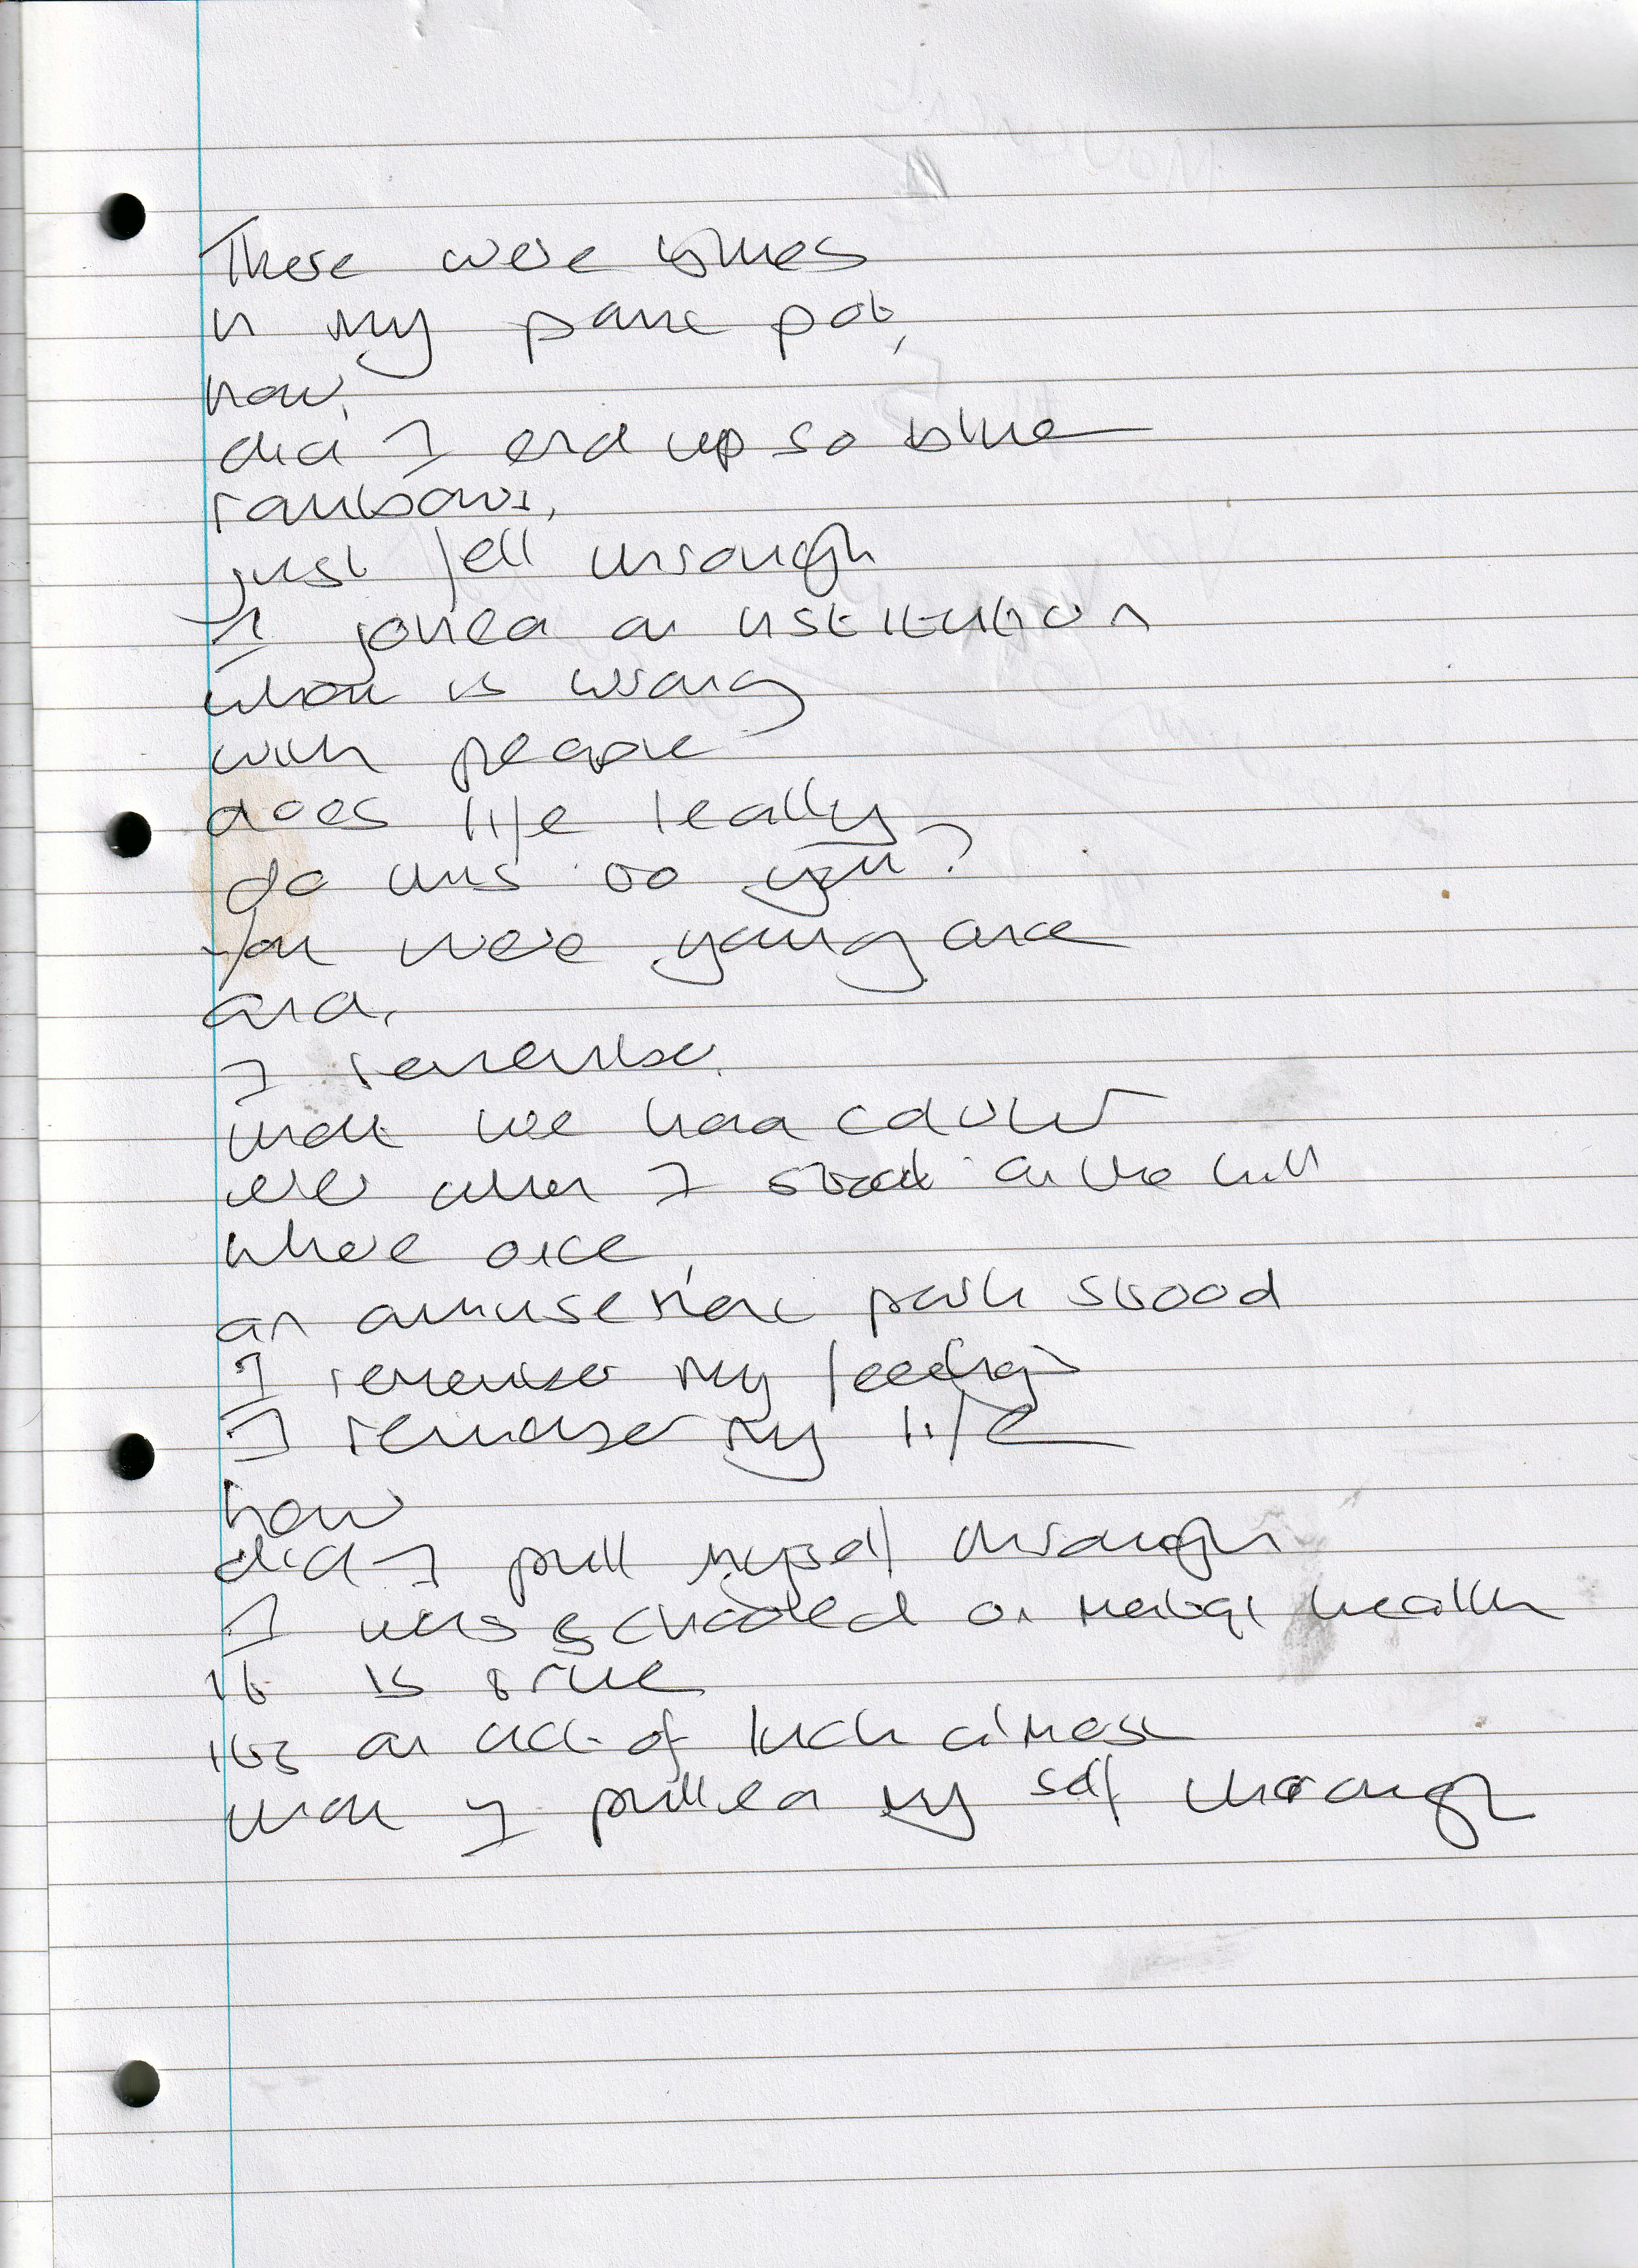 There were times
in my panic pot,
how,
did I end up so blue
rainbows,
just fell through
I joined an institution
what is wrong
with people
does life really
do this to you?
You were young once
and,
I remember,
that we had
ever when I stood on the hill
where once,
an amusement park stood
I remember my feelings
I remember my life
how
did I pull myself through
I was schooled on mental health
it is true
its an act of luck almost
that I pulled my self through